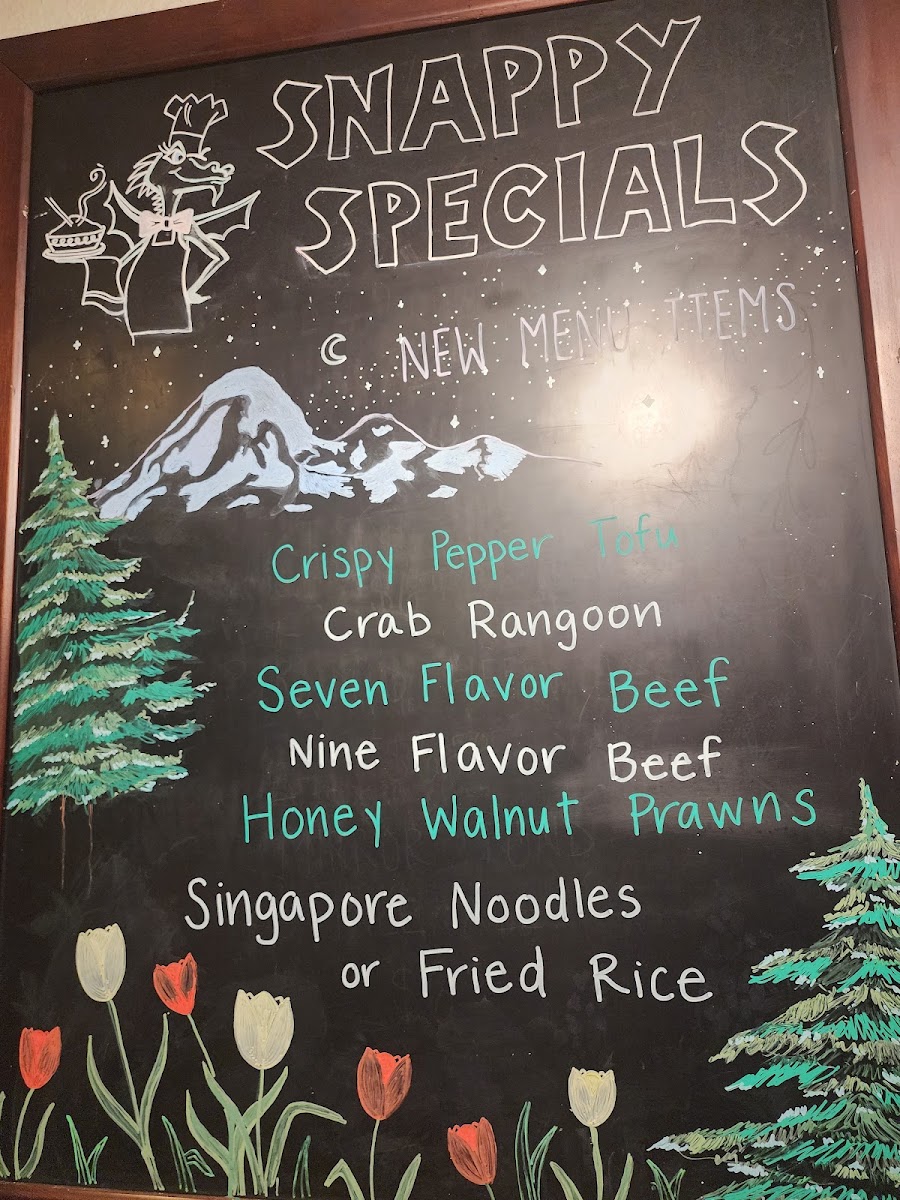 SNAPPY
SPECIALS
NEW MENU ITEMS
Crispy Pepper Tofu
Crab Rangoon
Seven Flavor Beef
Nine Flavor Beef
Honey Walnut Prawns
Singapore Noodles
or Fried Rice